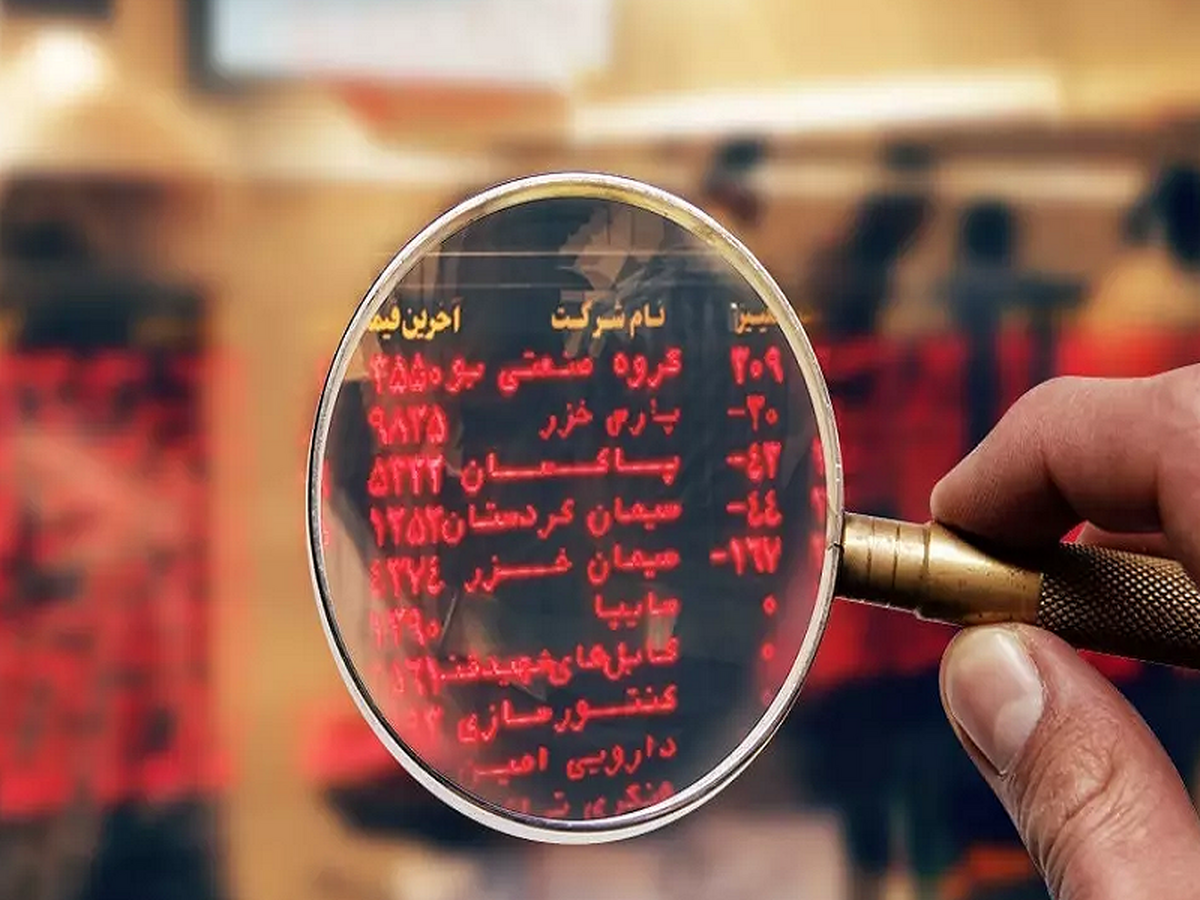 نام شرکت آخرین
۲۰۹ گروه صنعتی بو ۳۸۵۰
-۳۰ پارس خزر ۹۸۲۵
-۴۲ پاکسان ۵۲۲۲
-۴۴ سیمان کردستان ۱۲۵۲
-۱۶۷ سیمان خزر ۴۲۷۴
۰ سایپا ۱۲۹۰
۰ کابل‌های‌شهیدقند
کنتورسازی
دارویی امین